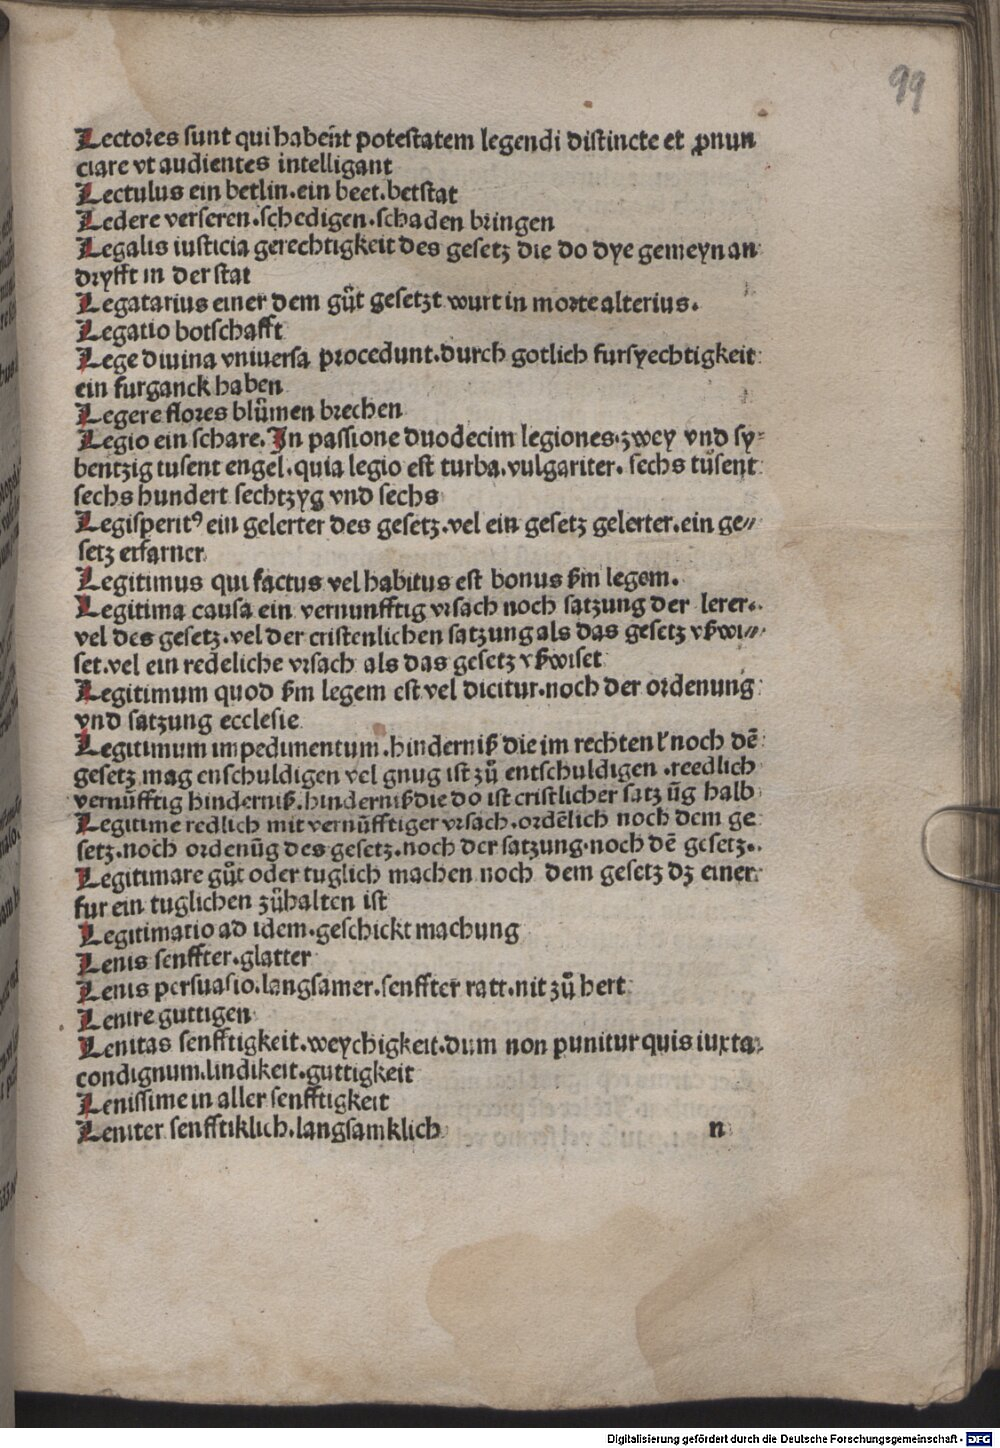 99
Lectores sunt qui habeñt potestatem legendi distincte et ꝓnun
ciare vt audientes intelligant
Lectulus ein betlin.ein beet.betstat
Ledere verseren.schedigen.schaden bringen
Legalis iusticia gerechtigkeit des gesetz die do dye gemeyn an
dryfft in der stat
Legatarius einer dem gůt gesetzt wurt in morte alterius.
Legatio botschafft
Lege diuina vniuersa procedunt.durch gotlich fursyechtigkeit
ein furganck haben
Legere flores blůmen brechen
Legio ein schare.In passione duodecim legiones.zwey vnd sy⸗
bentzig tusent engel.quia legio est turba.vulgariter.sechs tůsent
sechs hundert sechtzyg vnd sechs
Legisperitꝰ ein gelerter des gesetz.vel ein gesetz gelerter.ein ge⸗
setz erfarner
Legitimus qui factus vel habitus est bonus ẜm legem.
Legitima causa ein vernunfftig vrsach noch satzung der lerer.
vel des gesetz.vel der cristenlichen satzung als das gesetz vßwi⸗
set.vel ein redeliche vrsach als das gesetz vßwiset
Legitimum quod ẜm legem est vel dicitur.noch der ordenung
vnd satzung ecclesie
Legitimum impedimentum.hinderniß die im rechten ł noch dē
gesetz mag enschuldigen vel gnug ist zů entschuldigen.reedlich
vernūfftig hinderniß.hinderniß die do ist cristlicher satzūg halb
Legitime redlich mit vernūfftiger vrsach.ordēlich noch dem ge
setz.noch ordenūg des gesetz.noch der satzung.noch dē gesetz.
Legitimare gůt oder tuglich machen noch dem gesetz dz einer
fur ein tuglichen zů halten ist
Legitimatio ad idem.geschickt machung
Lenis senffter.glatter
Lenis persuasio.langsamer.senffter ratt.nit zů hert
Lenire guttigen
Lenitas senfftigkeit.weychigkeit.dum non punitur quis iuxta
condignum.lindikeit.guttigkeit
Lenissime in aller senfftigkeit
Leniter senfftiklich.langsamklich
n
Digitalisierung gefördert durch die Deutsche Forschungsgemeinschaft - DFG